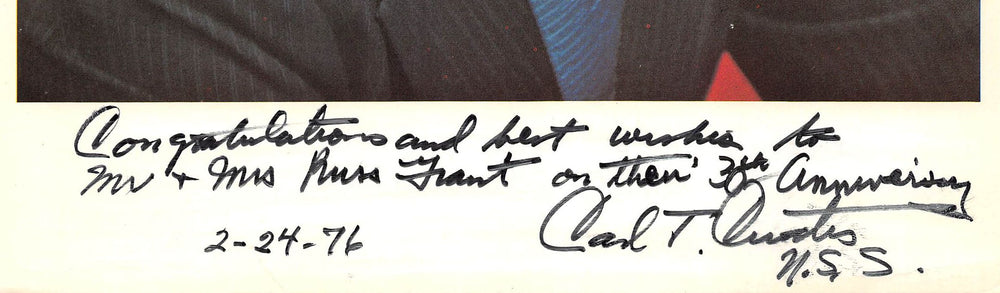 Congratulations and best wishes to
Mr + Mrs Russ Grant on their Anniversary
2-24-76
Carl T. Curtis
U.S.S.